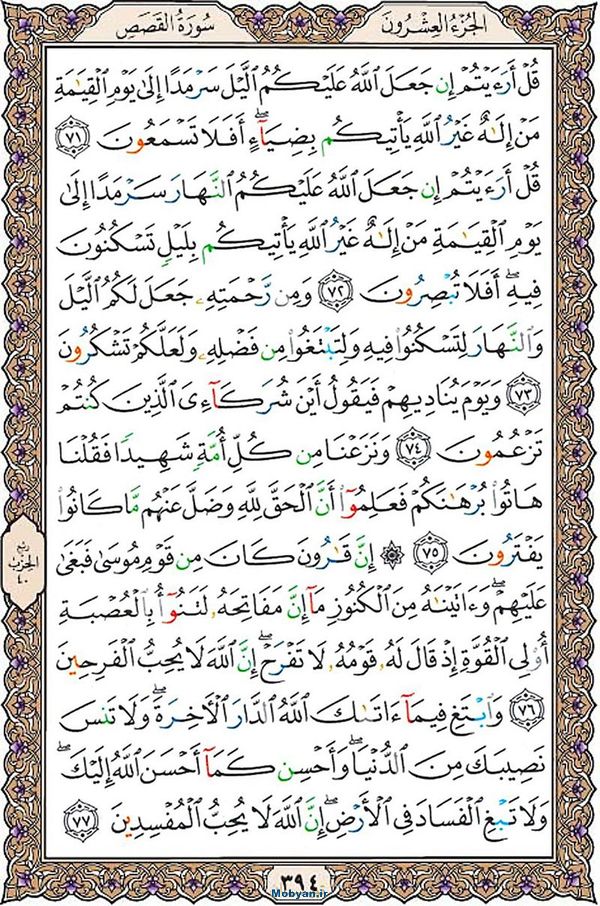 الجُزءُ العِشرُونَ
سُورَةُ القَصَصِ
قُلْ أَرَءَيْتُمْ إِن جَعَلَ ٱللَّهُ عَلَيْكُمُ ٱلَّيْلَ سَرْمَدًا إِلَىٰ يَوْمِ ٱلْقِيَٰمَةِ
مَنْ إِلَٰهٌ غَيْرُ ٱللَّهِ يَأْتِيكُم بِضِيَآءٍ ۖ أَفَلَا تَسْمَعُونَ ٧١
قُلْ أَرَءَيْتُمْ إِن جَعَلَ ٱللَّهُ عَلَيْكُمُ ٱلنَّهَارَ سَرْمَدًا إِلَىٰ
يَوْمِ ٱلْقِيَٰمَةِ مَنْ إِلَٰهٌ غَيْرُ ٱللَّهِ يَأْتِيكُم بِلَيْلٍ تَسْكُنُونَ
فِيهِ ۖ أَفَلَا تُبْصِرُونَ ٧٢ وَمِن رَّحْمَتِهِۦ جَعَلَ لَكُمُ ٱلَّيْلَ
وَٱلنَّهَارَ لِتَسْكُنُوا۟ فِيهِ وَلِتَبْتَغُوا۟ مِن فَضْلِهِۦ وَلَعَلَّكُمْ تَشْكُرُونَ
٧٣ وَيَوْمَ يُنَادِيهِمْ فَيَقُولُ أَيْنَ شُرَكَآءِىَ ٱلَّذِينَ كُنتُمْ
تَزْعُمُونَ ٧٤ وَنَزَعْنَا مِن كُلِّ أُمَّةٍ شَهِيدًا فَقُلْنَا
هَاتُوا۟ بُرْهَٰنَكُمْ فَعَلِمُوٓا۟ أَنَّ ٱلْحَقَّ لِلَّهِ وَضَلَّ عَنْهُم مَّا كَانُوا۟
يَفْتَرُونَ ٧٥ ۞ إِنَّ قَٰرُونَ كَانَ مِن قَوْمِ مُوسَىٰ فَبَغَىٰ
عَلَيْهِمْ ۖ وَءَاتَيْنَٰهُ مِنَ ٱلْكُنُوزِ مَآ إِنَّ مَفَاتِحَهُۥ لَتَنُوٓأُ بِٱلْعُصْبَةِ
أُو۟لِى ٱلْقُوَّةِ إِذْ قَالَ لَهُۥ قَوْمُهُۥ لَا تَفْرَحْ ۖ إِنَّ ٱللَّهَ لَا يُحِبُّ ٱلْفَرِحِينَ
٧٦ وَٱبْتَغِ فِيمَآ ءَاتَىٰكَ ٱللَّهُ ٱلدَّارَ ٱلْءَاخِرَةَ ۖ وَلَا تَنسَ
نَصِيبَكَ مِنَ ٱلدُّنْيَا ۖ وَأَحْسِن كَمَآ أَحْسَنَ ٱللَّهُ إِلَيْكَ ۖ
وَلَا تَبْغِ ٱلْفَسَادَ فِى ٱلْأَرْضِ ۖ إِنَّ ٱللَّهَ لَا يُحِبُّ ٱلْمُفْسِدِينَ ٧٧
ربع
الحزب
٤٠
٣٩٤
Mobyan.ir